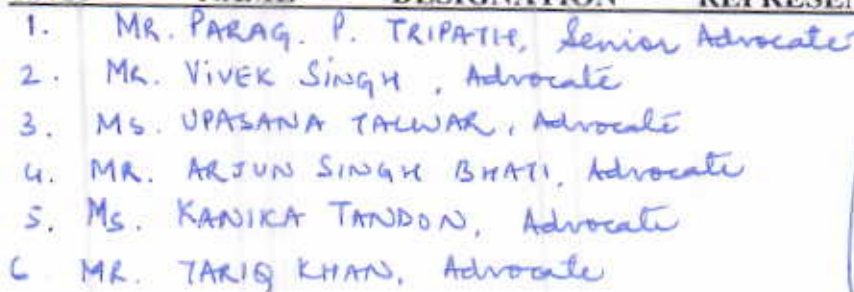 NAME DESIGNATION REPRESEN
1. MR. PARAG. P. TRIPATHI, Senior Advocate
2. MR. VIVEK SINGH, Advocate
3. MS. UPASANA TALWAR, Advocate
4. MR. ARJUN SINGH BHATI, Advocate
5. MS. KANIKA TANDON, Advocate
6 MR. TARIQ KHAN, Advocate